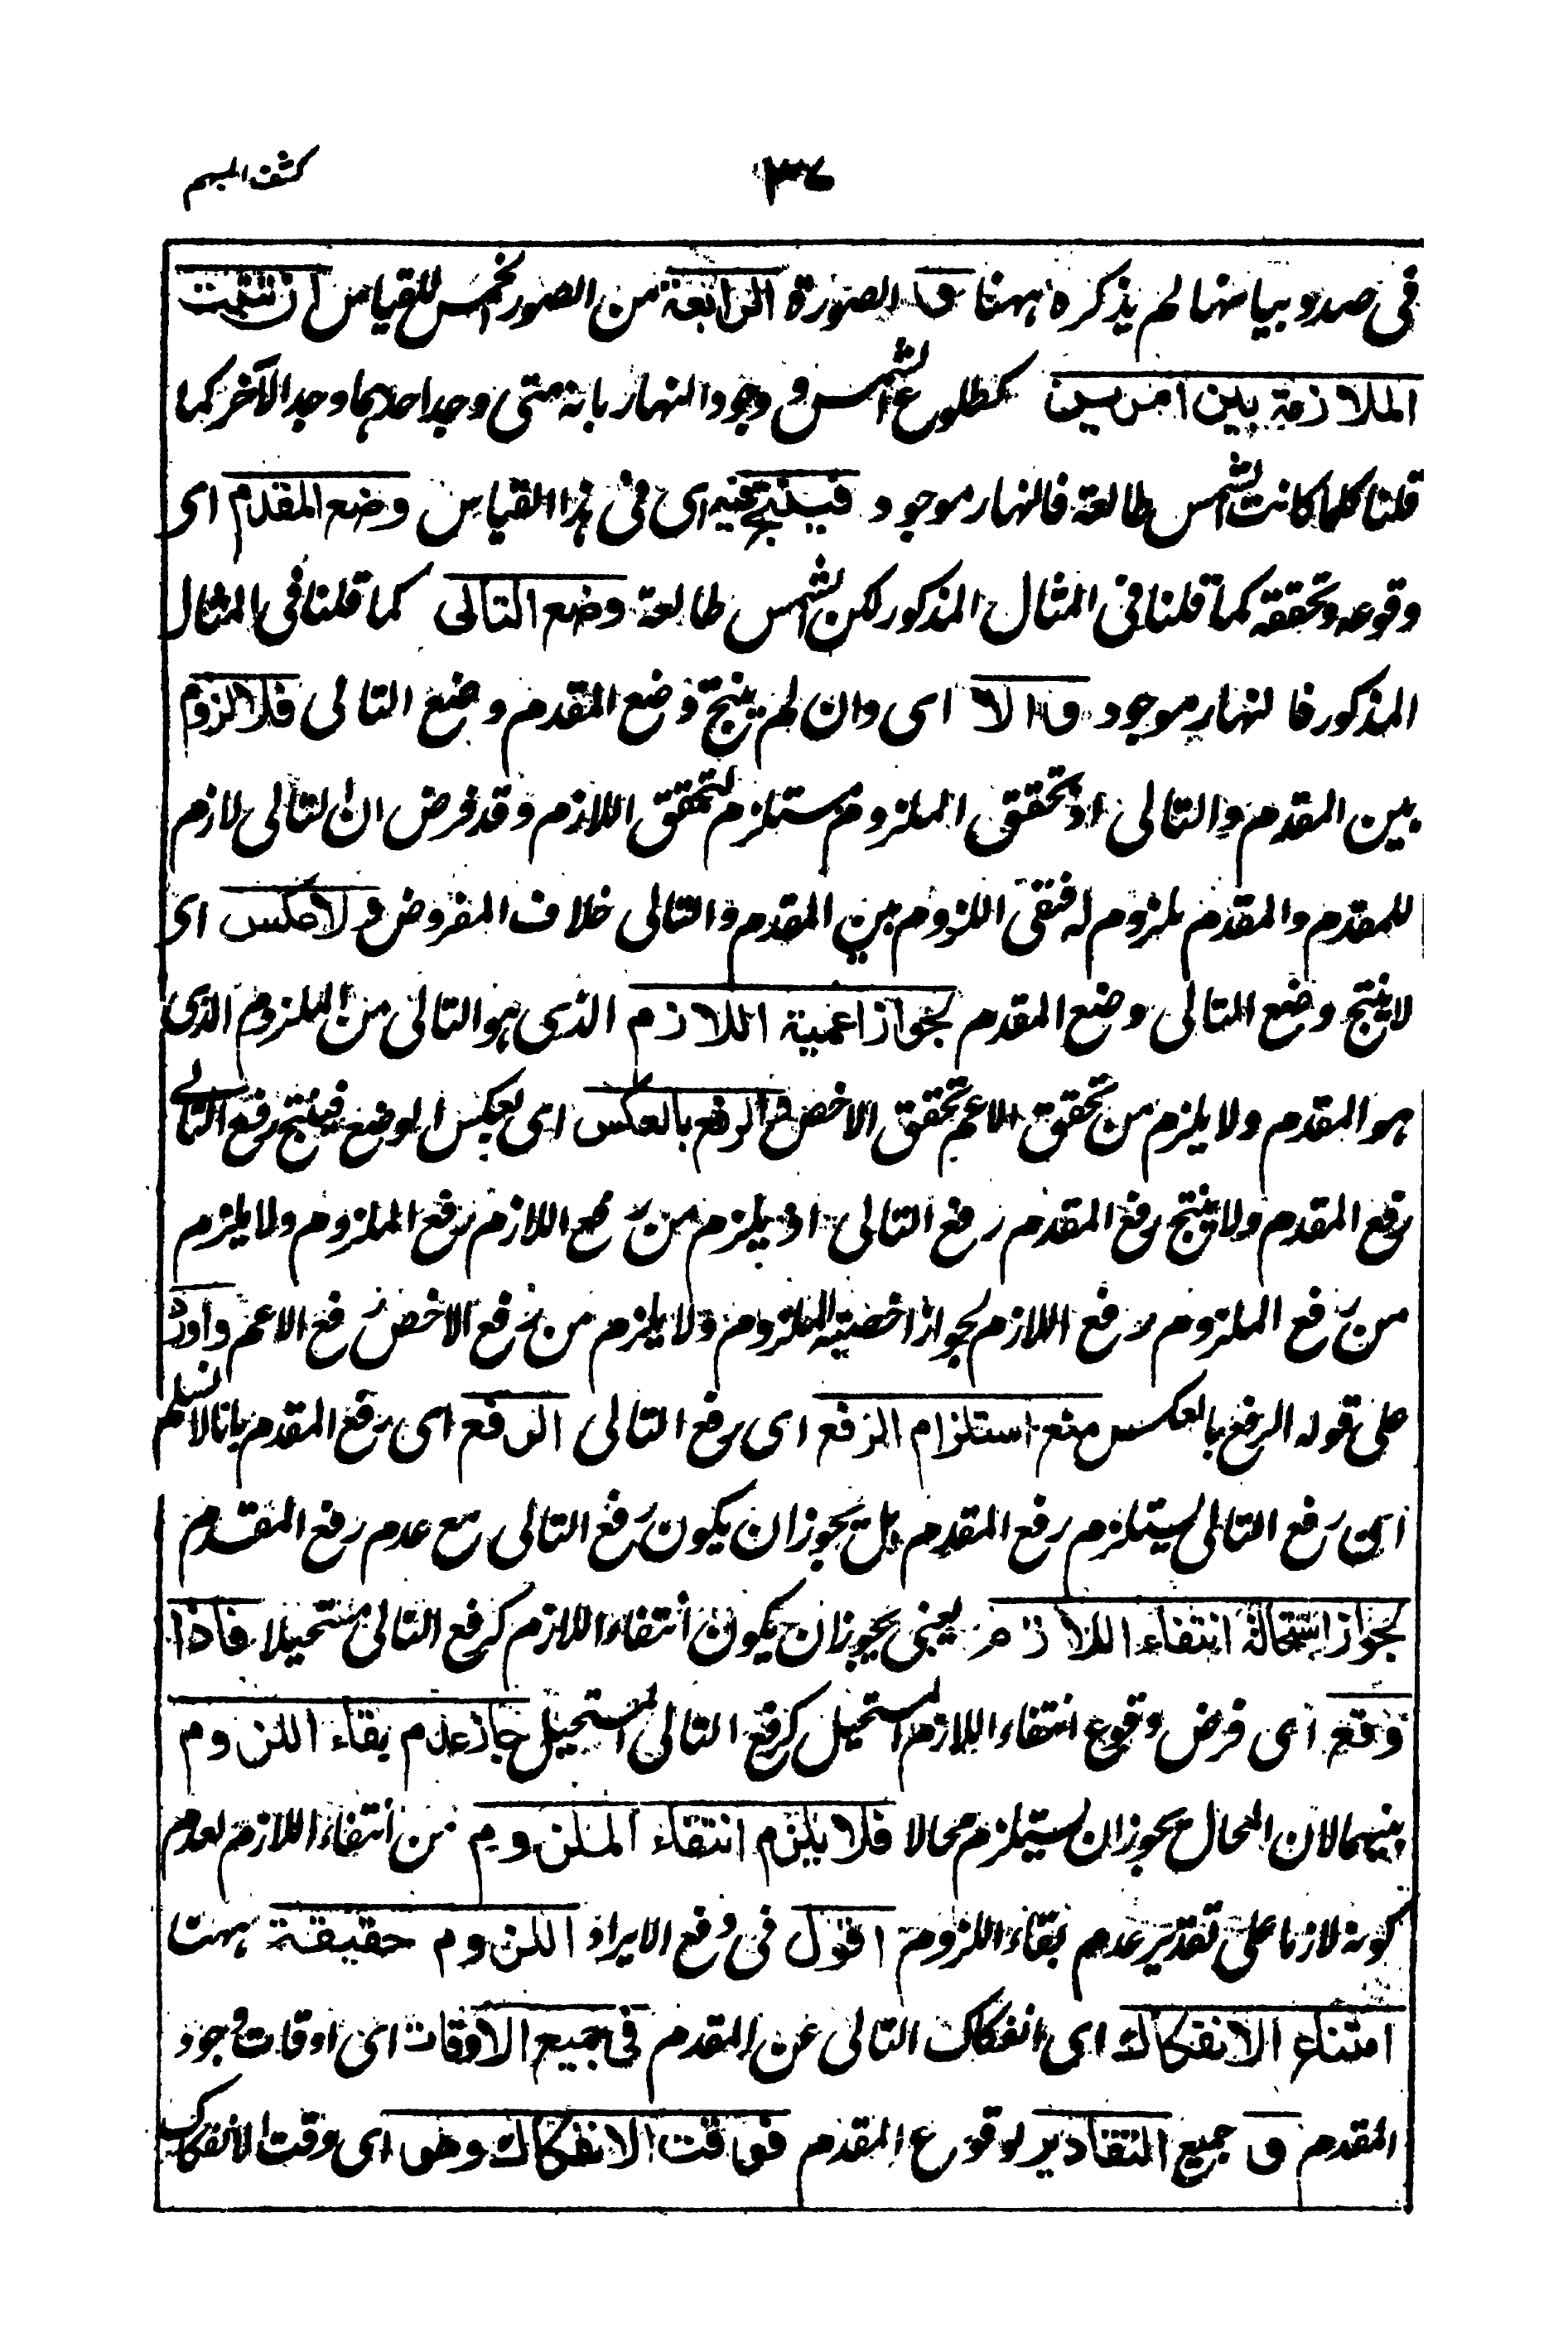 كشف المبهم
٣٤
فى صدد بيانها لم يذكره ههنا و الصورة الرابعة من الصور الخمس للقياس ان تثبت
الملازمة بين امرين كطلوع الشمس و وجود النهار بانه متى وجد احدهما وجد الآخر كما
قلنا كلما كانت الشمس طالعة فالنهار موجود فينتج فيه اى فى هذا القياس وضع المقدم اى
وقوعه وتحققه كما قلنا فى المثال المذكور لكن الشمس طالعة وضع التالى كما قلنا فى المثال
المذكور فالنهار موجود والا اى وان لم ينتج وضع المقدم وضع التالى فلا لزوم
بين المقدم والتالى اذ تحقق الملزوم مستلزم لتحقق اللازم وقد فرض ان التالى لازم
للمقدم والمقدم ملزوم له فنفى اللزوم بين المقدم والتالى خلاف المفروض ولا عكس اى
لا ينتج وضع التالى وضع المقدم لجواز اعمية اللازم الذى هو التالى من الملزوم الذى
هو المقدم ولا يلزم من تحقق الاعم تحقق الاخص و الرفع بالعكس اى بعكس الوضع فينتج رفع التالى
رفع المقدم ولا ينتج رفع المقدم رفع التالى اذ يلزم من رفع اللازم رفع الملزوم ولا يلزم
من رفع الملزوم رفع اللازم لجواز اخصية الملزوم ولا يلزم من رفع الاخص رفع الاعم واورد
على قوله الرفع بالعكس منع استلزام الرفع اى رفع التالى الرفع اى رفع المقدم بانا لا نسلم
ان رفع التالى يستلزم رفع المقدم بل يجوز ان يكون رفع التالى مع عدم رفع المقدم
لجواز استحالة انتفاء اللازم يعنى يجوز ان يكون انتفاء اللازم كرفع التالى مستحيلا فاذا
وقع اى فرض وقوع انتفاء اللازم المستحيل كرفع التالى المستحيل جاز عدم بقاء اللزوم
بينهما لان المحال يجوز ان يستلزم محالا فلا يلزم انتفاء الملزوم من انتفاء اللازم لعدم
كونه لازما على تقدير عدم بقاء اللزوم اقول فى دفع الايراد اللزوم حقيقة
امتناع الانفكاك اى انفكاك التالى عن المقدم فى جميع الاوقات اى اوقات وجود
المقدم و جميع التقادير لوقوع المقدم فوقت الانفكاك وهو اى وقت الانفكاك